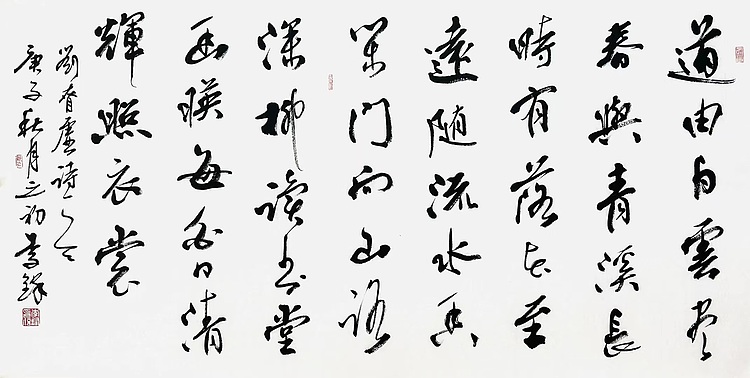 道由白雲尽
春與青溪長
時有落花至
遠随流水香
閑門向山路
深柳读书堂
幽暎每白日清
輝照衣裳
劉眘虛詩一首
庚子秋月之初